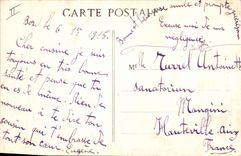 II
CARTE POSTALE
Bon le 6-15 1915.
Cher cousine je suis
toujours en très bonne
santé et pense que toi
en es de même. Rien de
nouveau à te dire ton
cousin que t'embrasse de
tout son cœur. Eugène.
Bonne santé et prompte guérison
Excuse moi de ma
négligence
Mlle Turrel Antoinette
sanatorium
Mangini
Hauteville Ain
France